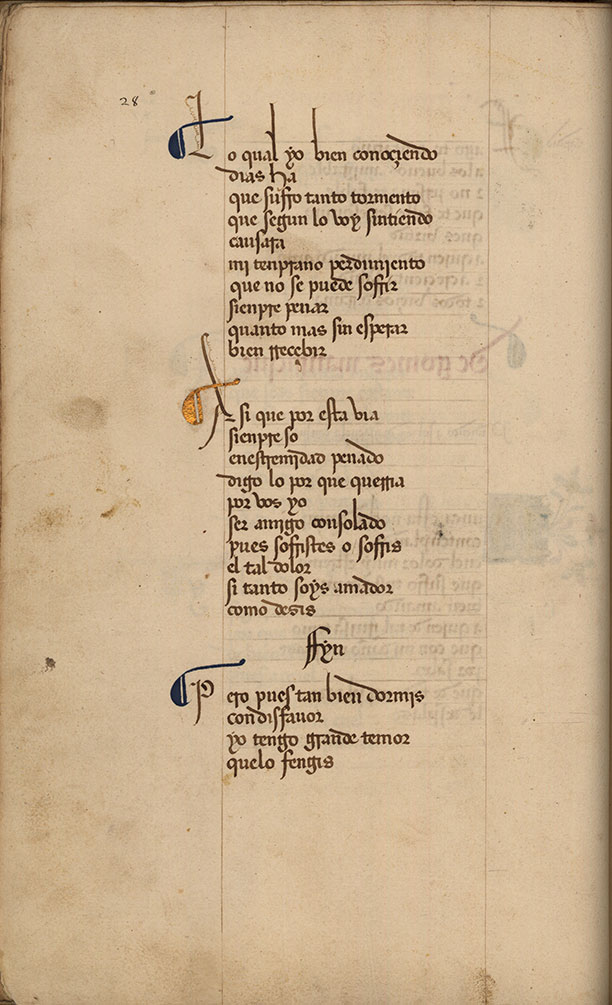 28
Lo qual yo bien conoçiendo
dias ha
que suffro tanto tormento
que segun lo voy sintiendo
causara
mi tenprano perdimiento
que no se puede soffrir
sienpre penar
quanto mas sin esperar
bien rreçebir
Asi que por esta via
sienpre so
enestremidad penado
digo lo por que querria
por vos yo
ser amigo consolado
pues soffristes o soffris
el tal dolor
si tanto soys amador
como desis
ffyn
Pero pues tan bien dormis
condisfauor
yo tengo grande temor
quelo fengis